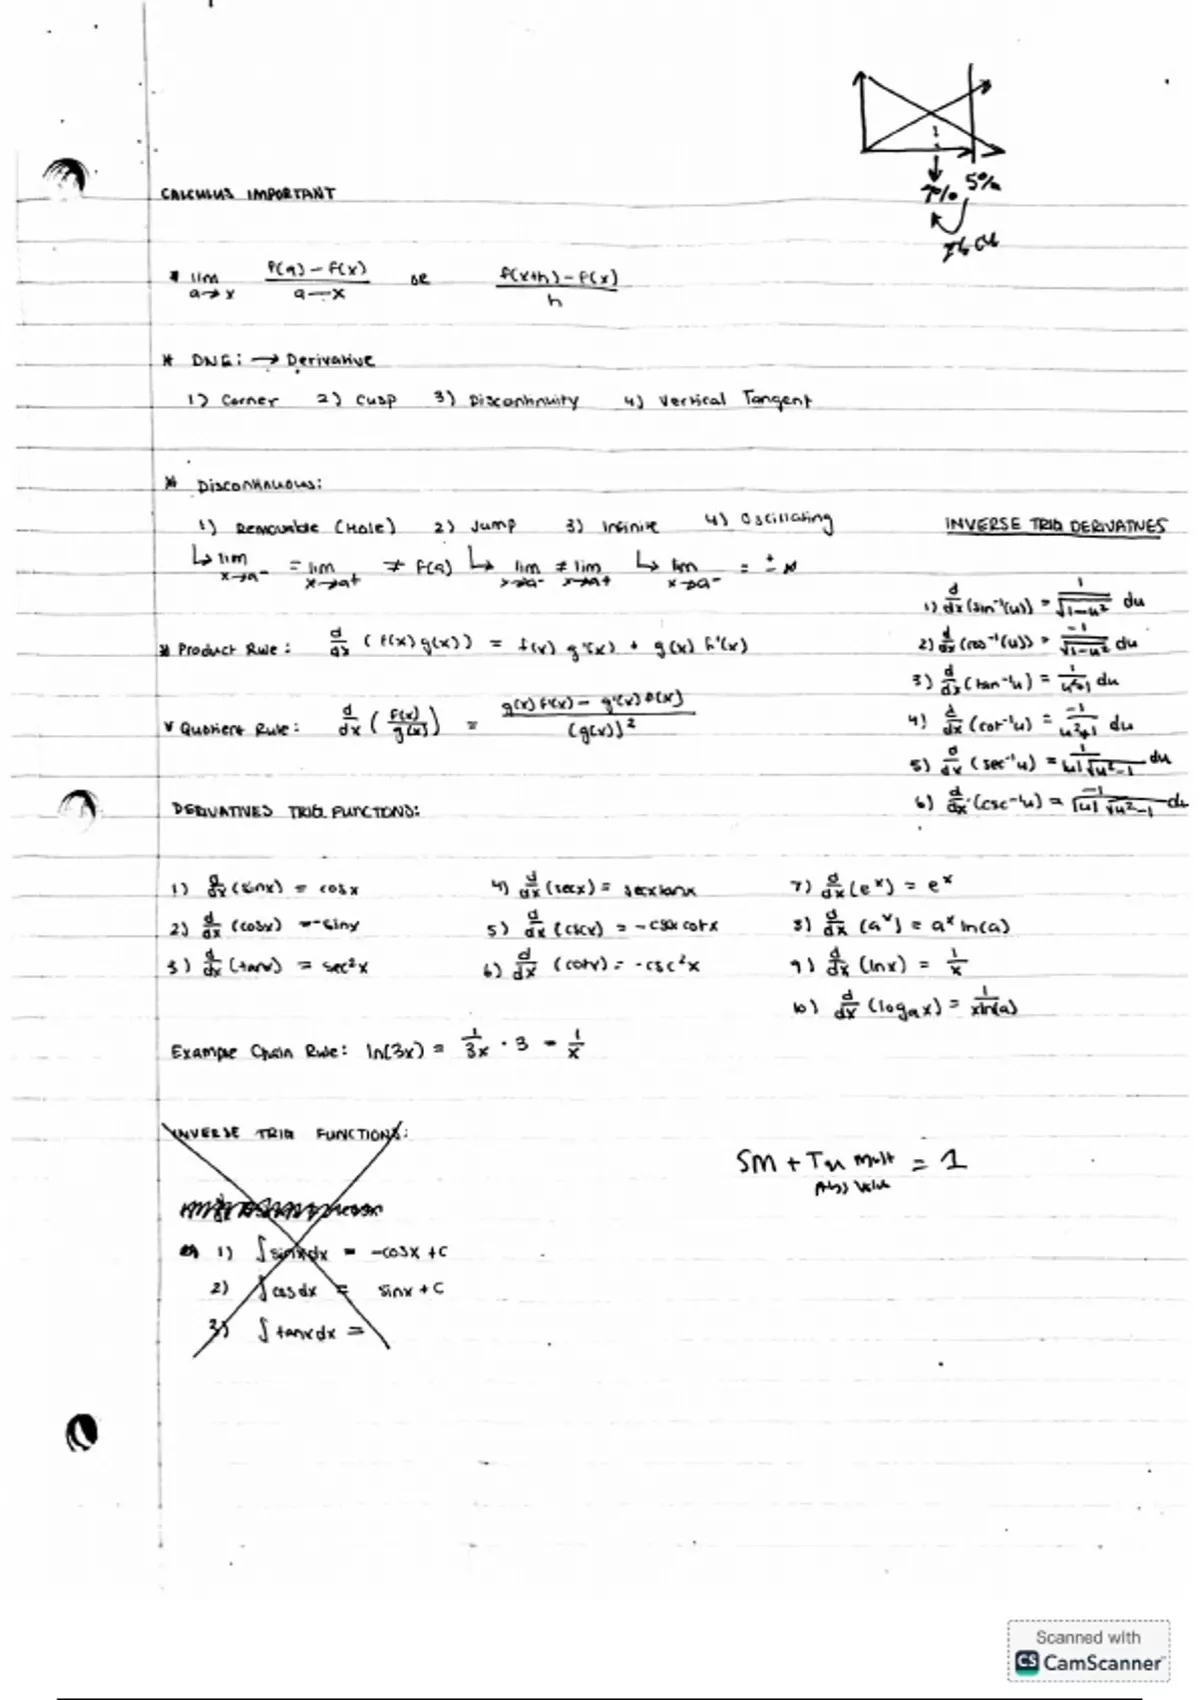 7% 5%
CALCULUS IMPORTANT
* lim a→x f(a) - f(x) / a - x OR f(x+h) - f(x) / h
* DNE: → Derivative
1) Corner 2) Cusp 3) Discontinuity 4) Vertical Tangent
* Discontinuous:
1) Removable (Hole) 2) Jump 3) Infinite 4) Oscillating
↳ lim x→a- = lim x→a+ ≠ f(a) ↳ lim x→a- ≠ lim x→a+ ↳ lim x→a- = ± ∞
* Product Rule: d/dx (f(x)g(x)) = f(x) g'(x) + g(x) f'(x)
* Quotient Rule: d/dx (f(x)/g(x)) = g(x)f'(x) - g'(x)f(x) / (g(x))²
INVERSE TRIG DERIVATIVES
1) d/dx (sin⁻¹(u)) = 1/√1-u² du
2) d/dx (cos⁻¹(u)) = -1/√1-u² du
3) d/dx (tan⁻¹u) = 1/u²+1 du
4) d/dx (cot⁻¹u) = -1/u²+1 du
5) d/dx (sec⁻¹u) = 1/|u|√u²-1 du
6) d/dx (csc⁻¹u) = -1/|u|√u²-1 du
DERIVATIVES TRIG FUNCTIONS:
1) d/dx (sinx) = cosx 4) d/dx (secx) = secxtanx 7) d/dx (eˣ) = eˣ
2) d/dx (cosx) = -sinx 5) d/dx (cscx) = -cscx cotx 8) d/dx (aˣ) = aˣ ln(a)
3) d/dx (tanx) = sec²x 6) d/dx (cotx) = -csc²x 9) d/dx (lnx) = 1/x
10) d/dx (logₐx) = 1/xln(a)
Example Chain Rule: ln(3x) = 1/3x · 3 = 1/x
INVERSE TRIG FUNCTIONS:
1) ∫sinxdx = -cosx + C
2) ∫cosdx = sinx + C
3) ∫tanxdx =
SM + Tu Mult = 1
Abs Value
Scanned with
CS CamScanner